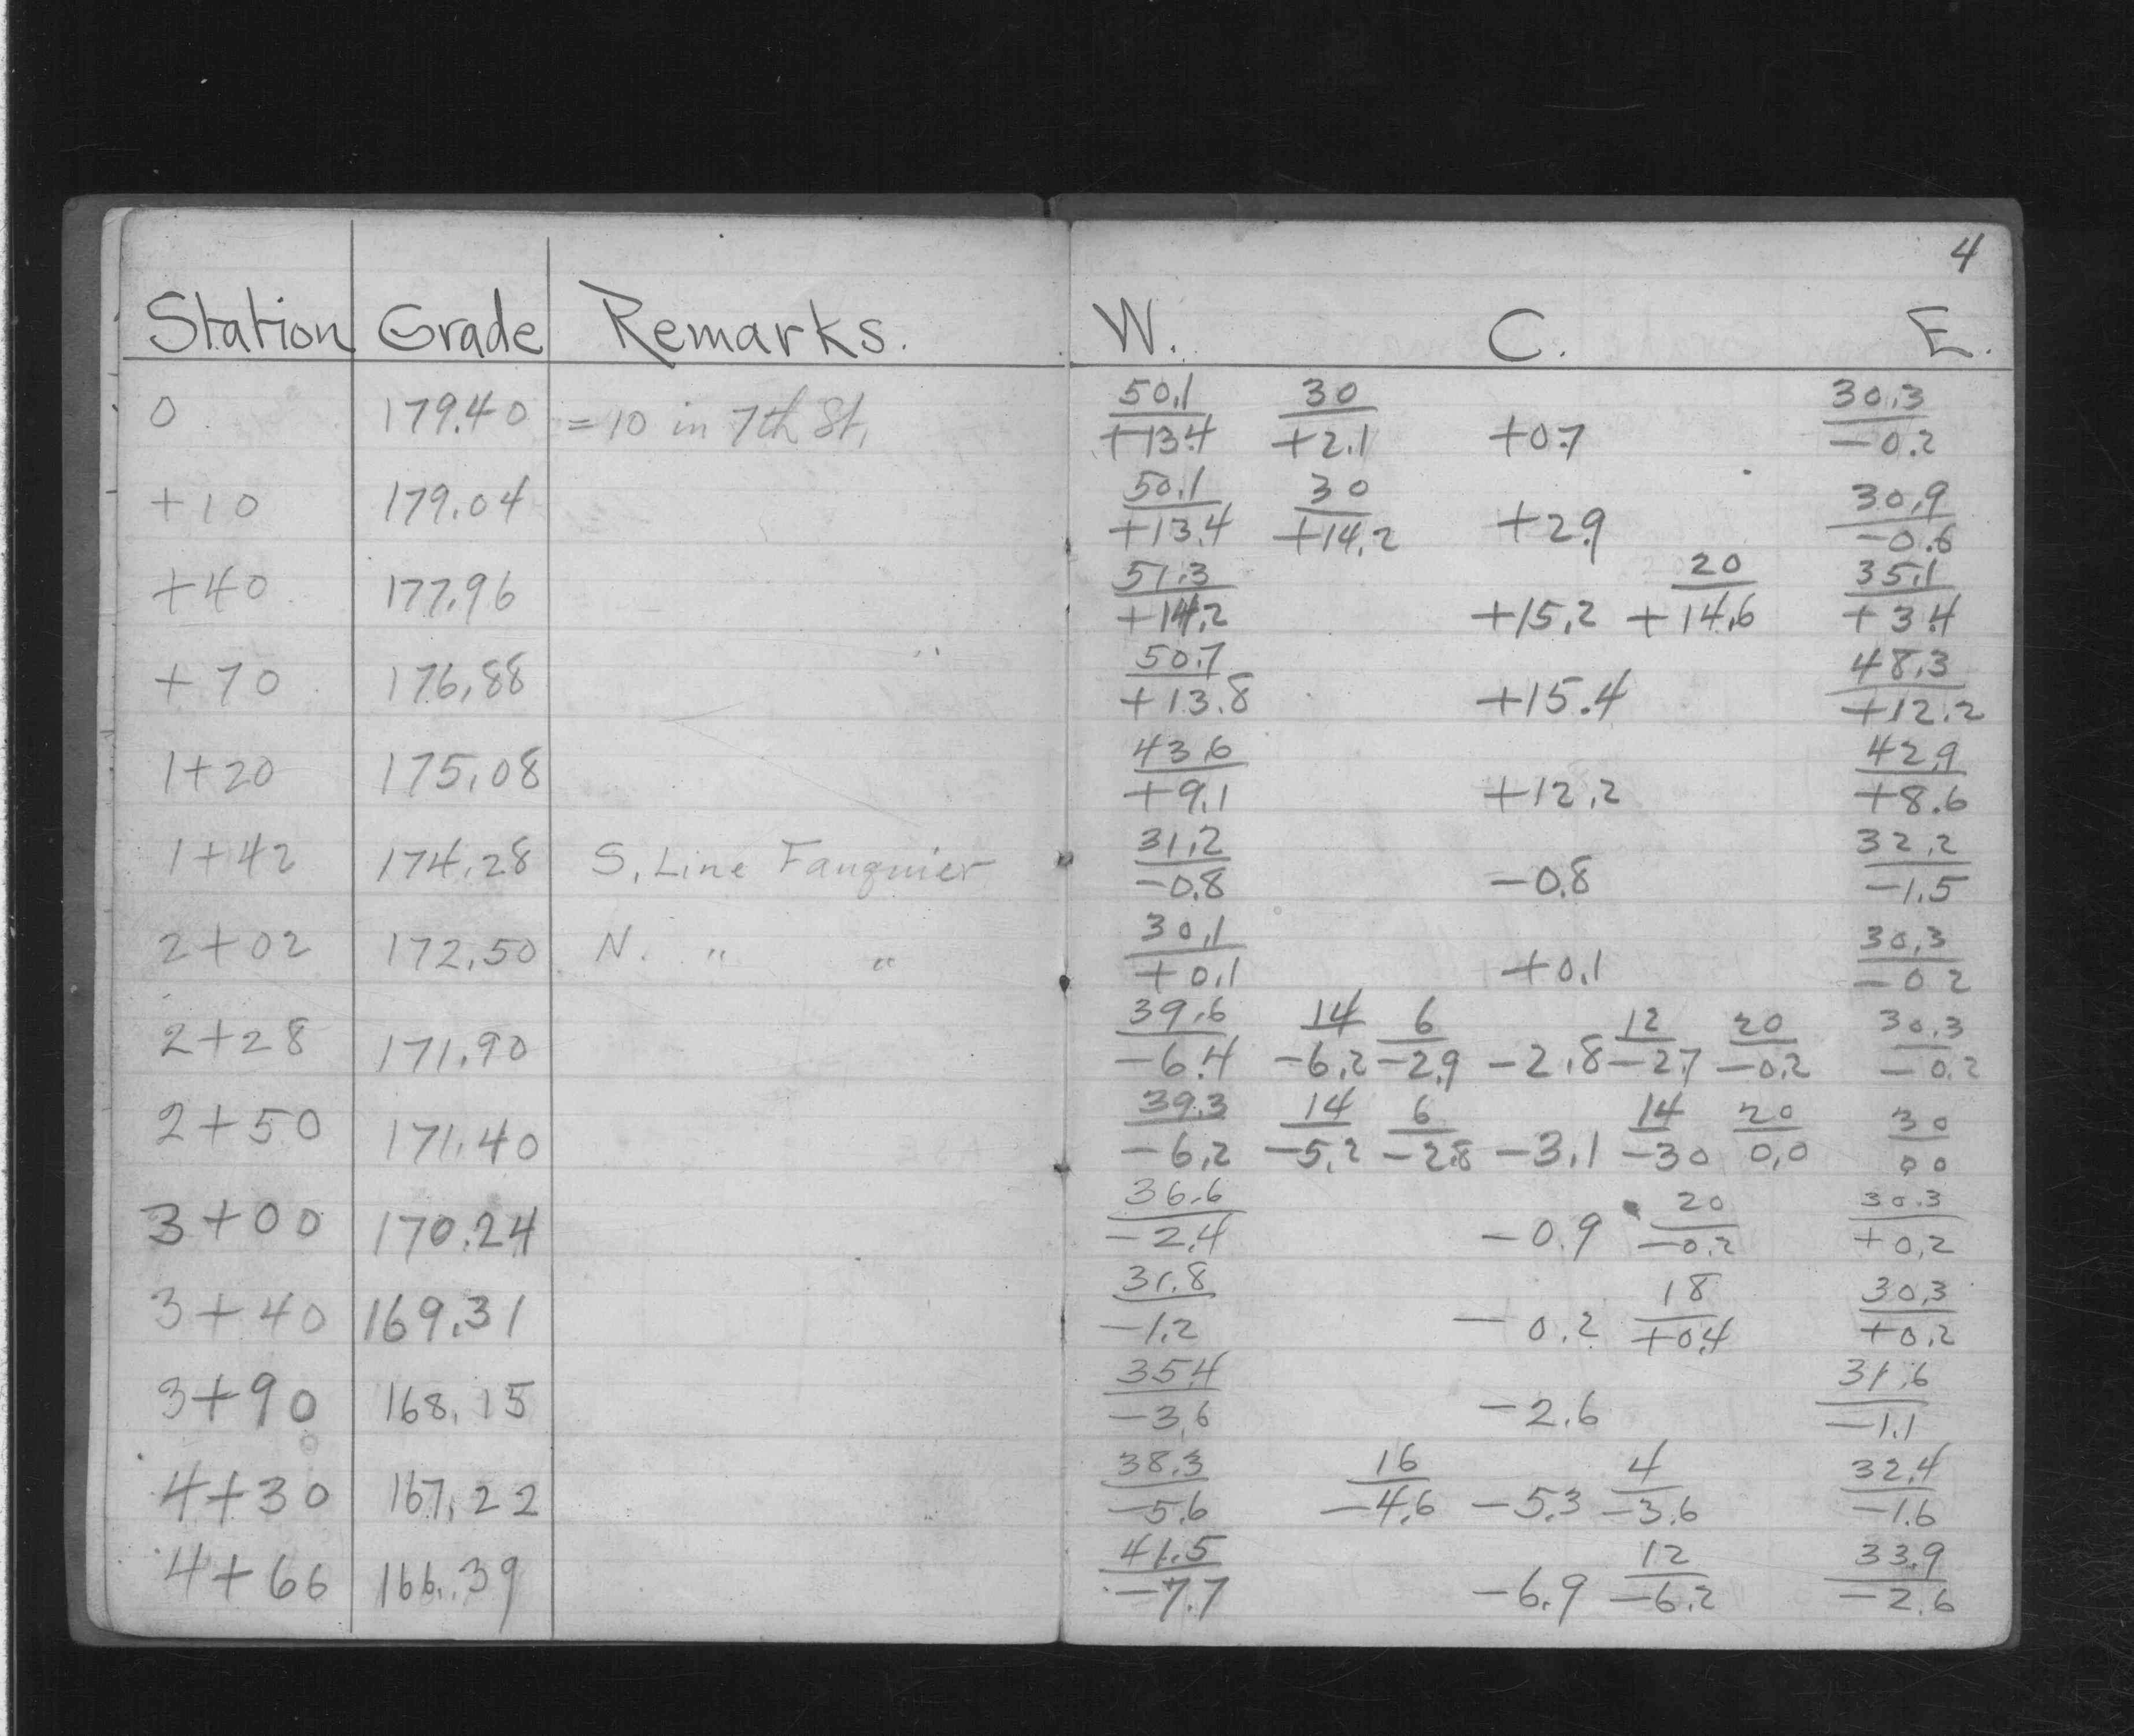 4
Station Grade Remarks. W. C. E.
0 179.40 = 10 in 7th St. 50.1/+13.4 30/+2.1 +0.7 30.3/-0.2
+10 179.04 50.1/+13.4 30/+14.2 +2.9 30.9/-0.6
+40 177.96 51.3/+14.2 +15.2 20/+14.6 35.1/+3.4
+70 176.88 50.7/+13.8 +15.4 48.3/+12.2
1+20 175.08 43.6/+9.1 +12.2 42.9/+8.6
1+42 174.28 S. Line Fauquier 31.2/-0.8 -0.8 32.2/-1.5
2+02 172.50 N. " " 30.1/+0.1 +0.1 30.3/-0.2
2+28 171.90 39.6/-6.4 14/-6.2 6/-2.9 -2.8 12/-2.7 20/-0.2 30.3/-0.2
2+50 171.40 39.3/-6.2 14/-5.2 6/-2.8 -3.1 14/-3.0 20/0.0 30/0.0
3+00 170.24 36.6/-2.4 -0.9 20/-0.2 30.3/+0.2
3+40 169.31 31.8/-1.2 -0.2 18/+0.4 30.3/+0.2
3+90 168.15 35.4/-3.6 -2.6 31.6/-1.1
4+30 167.22 38.3/-5.6 16/-4.6 -5.3 4/-3.6 32.4/-1.6
4+66 166.39 41.5/-7.7 -6.9 12/-6.2 33.9/-2.6